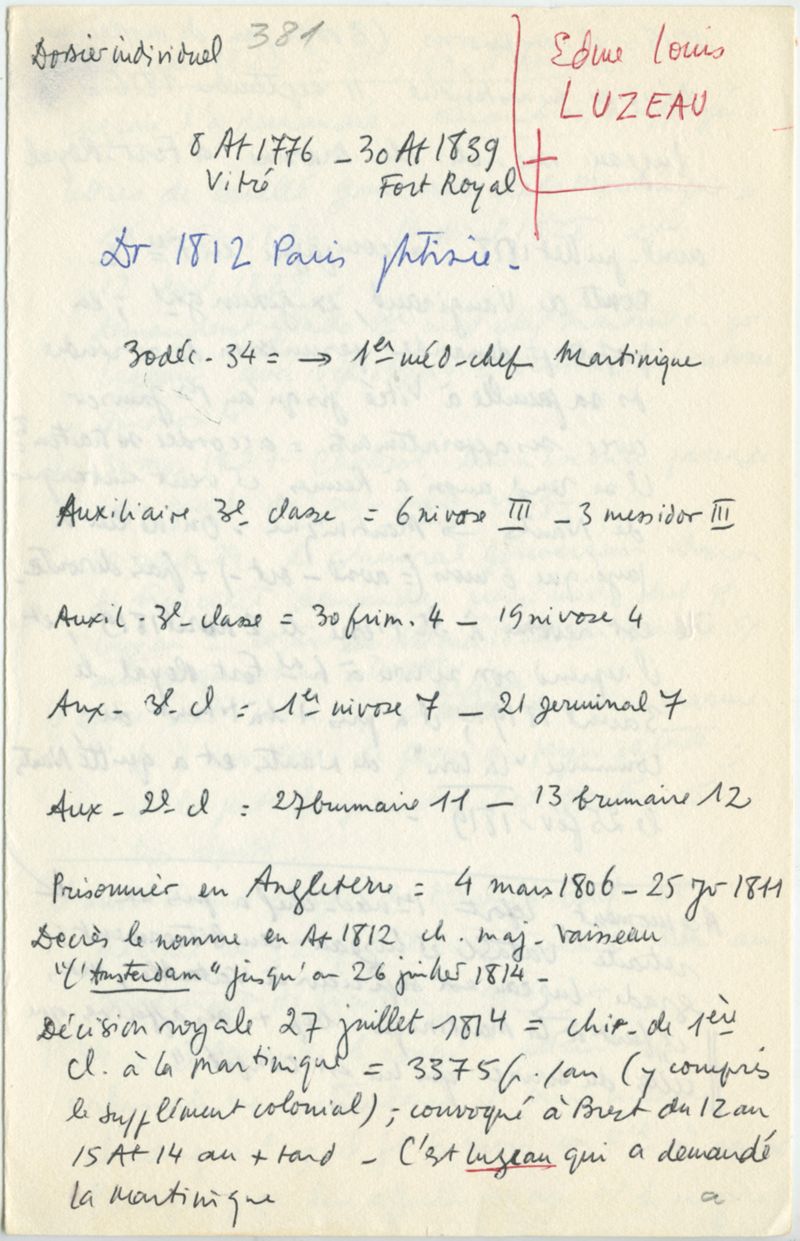 Dossier individuel 381
Edme Louis
LUZEAU
8 At 1776 - 30 At 1839
Vitré Fort Royal
Dr 1812 Paris phtisie -
30 déc. 34 = → 1er méd-chef Martinique
Auxiliaire 3e classe = 6 nivose III - 3 messidor III
Auxil. 3e classe = 30 frim. 4 - 19 nivose 4
Aux - 3e cl = 1er nivose 7 - 21 germinal 7
Aux - 2e cl = 27 brumaire 11 - 13 brumaire 12
Prisonnier en Angleterre = 4 mars 1806 - 25 Jr 1811
Decrès le nomme en At 1812 ch. maj - vaisseau
"l'Amsterdam" jusqu'au 26 juillet 1814 -
Décision royale 27 juillet 1814 = chir. de 1ère
cl. à la Martinique = 3375 fr. /an (y compris
le supplément colonial) ; convoqué à Brest du 12 au
15 At 14 au + tard - C'est Luzeau qui a demandé
la Martinique